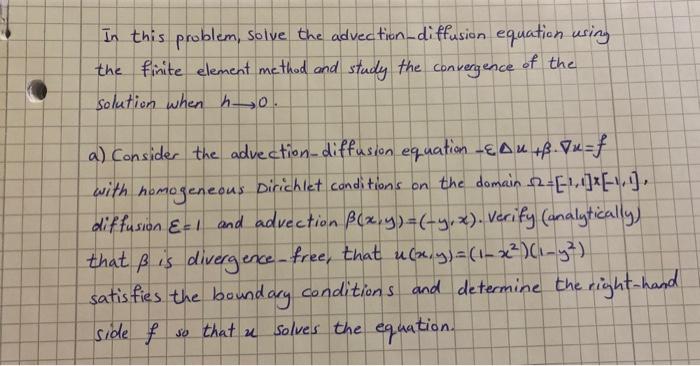 In this problem, solve the advection-diffusion equation using
the finite element method and study the convergence of the
solution when h→0.
a) Consider the advection-diffusion equation -εΔu+β.∇u=f
with homogeneous Dirichlet conditions on the domain Ω=[-1,1]x[-1,1],
diffusion ε=1 and advection β(x,y)=(-y,x). Verify (analytically)
that β is divergence-free, that u(x,y)=(1-x²)(1-y²)
satisfies the boundary conditions and determine the right-hand
side f so that u solves the equation.